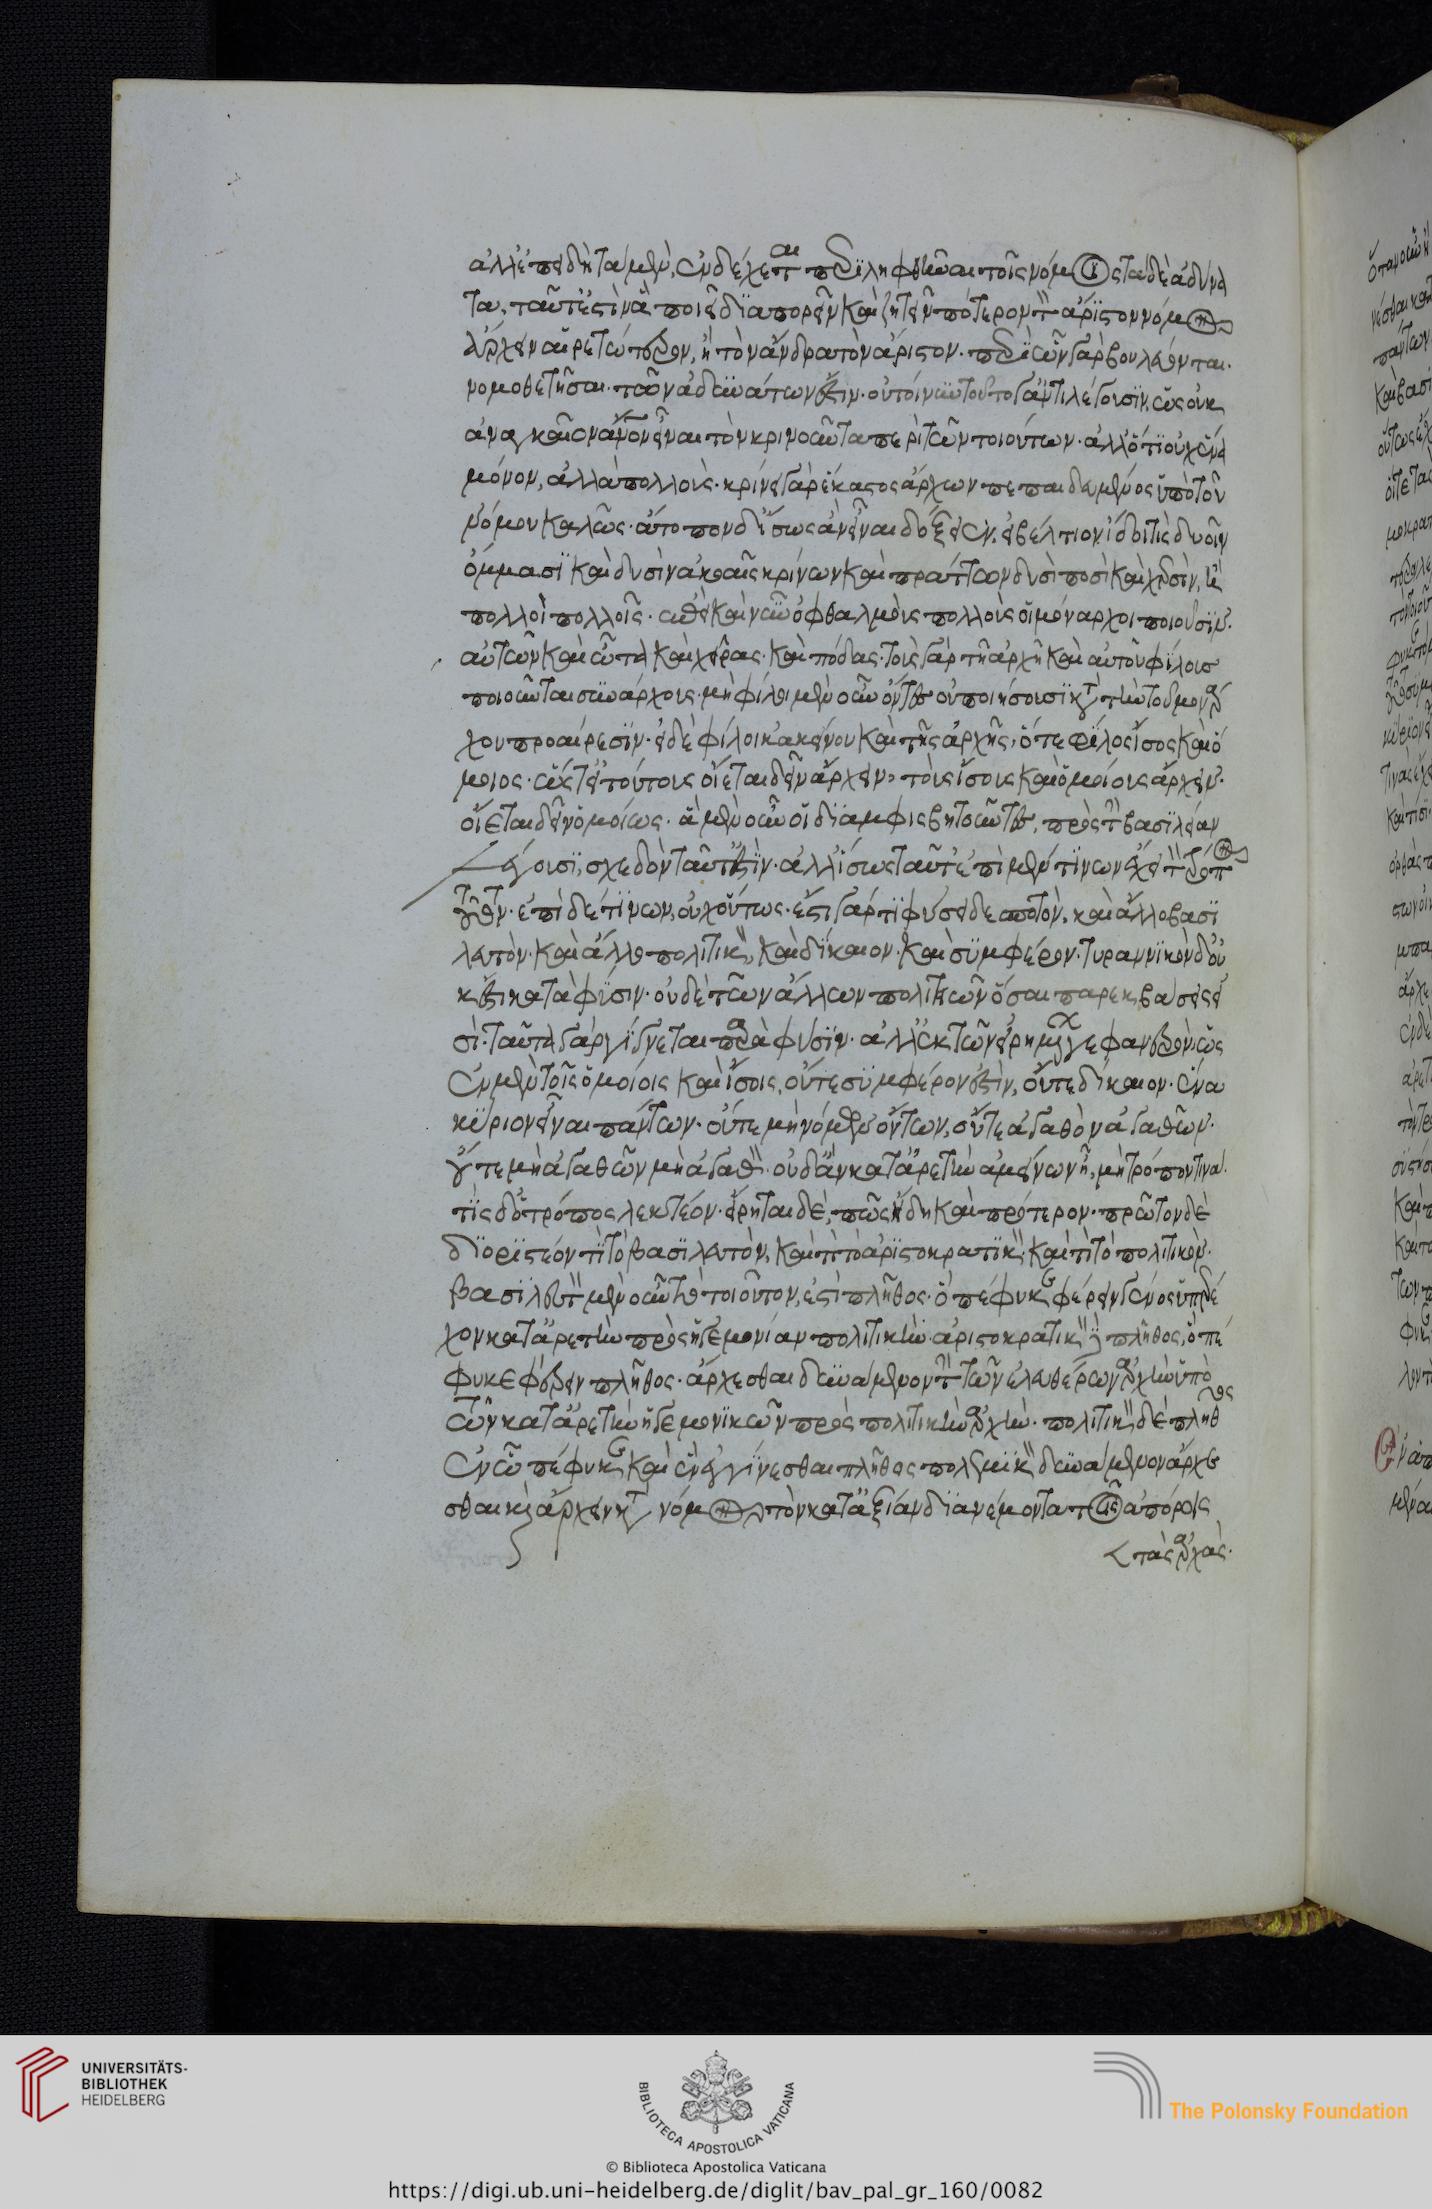 ἀλλ' ἐπειδὴ τὰ μὲν, ἐνδέχεται περιληφθῆναι τοῖς νόμοις τὰ δὲ ἀδύνα
τα, ταῦτ' ἐστὶν ἃ ποιεῖ διαπορεῖν καὶ ζητεῖν πότερον τὸν ἄριστον νόμον
ἄρχειν αἱρετώτερον, ἢ τὸν ἄνδρα τὸν ἄριστον. περὶ ὧν γὰρ βουλεύονται.
νομοθετῆσαι. τῶν ἀδυνάτων ἐστιν. οὐ τοίνυν τοῦτο γ' ἀντιλέγουσιν, ὡς οὐκ
ἀναγκαῖον ἄνθρωπον εἶναι τὸν κρινοῦντα περὶ τῶν τοιούτων. ἀλλ' ὅτι οὐχ ἕνα
μόνον, ἀλλὰ πολλούς. κρίνει γὰρ ἕκαστος ἄρχων πεπαιδευμένος ὑπὸ τοῦ
νόμου καλῶς. ἄτοπον δ' ἴσως ἂν εἶναι δόξειεν. εἰ βέλτιον ἴδοι τὶς δυοῖν
ὄμμασι καὶ δυσὶν ἀκοαῖς κρίνων καὶ πράττων δυσὶ ποσὶ καὶ χερσὶν, ἢ
πολλοὶ πολλοῖς. ἐπεὶ καὶ νῦν ὀφθαλμοὺς πολλοὺς οἱ μόναρχοι ποιοῦσιν.
αὑτῶν καὶ ὦτα καὶ χεῖρας. καὶ πόδας. τοὺς γὰρ τῇ ἀρχῇ καὶ αὐτοῦ φίλους
ποιοῦνται συνάρχους. μὴ φίλοι μὲν οὖν ὄντες οὐ ποιήσουσι κατὰ τὴν τοῦ μονάρ
χου προαίρεσιν. εἰ δὲ φίλοι κἀκείνου καὶ τῆς ἀρχῆς, ὅ τε φίλος ἴσος καὶ ὅ
μοιος. ὥστ' εἰ τούτους οἴεται δεῖν ἄρχειν, τοὺς ἴσους καὶ ὁμοίους ἄρχειν.
οἴεται δεῖν ὁμοίως. ἃ μὲν οὖν οἱ διαμφισβητοῦντες, πρὸς τὴν βασιλείαν
λέγουσι, σχεδὸν ταῦτ' ἐστὶν. ἀλλ' ἴσως ταῦτ' ἐπὶ μέν τινων ἔχει τὸν τρόπον
τοῦτον. ἐπὶ δέ τινων, οὐχ οὕτως. ἔστι γάρ τι φύσει δεσποτὸν, καὶ ἄλλο βασι
λευτὸν. καὶ ἄλλο πολιτικὸν, καὶ δίκαιον. καὶ συμφέρον. τυραννικὸν δ' οὐ
κ ἔστι κατὰ φύσιν. οὐδὲ τῶν ἄλλων πολιτειῶν ὅσαι παρεκβάσεις εἰ
σί. ταῦτα γὰρ γίγνεται παρὰ φύσιν. ἀλλ' ἐκ τῶν εἰρημένων γε φανερὸν, ὡς
ἐν μὲν τοῖς ὁμοίοις καὶ ἴσοις, οὔτε συμφέρον ἐστὶν, οὔτε δίκαιον. ἕνα
κύριον εἶναι πάντων. οὔτε μὴ νόμων ὄντων, οὔτε ἀγαθὸν ἀγαθῶν.
οὔτε μὴ ἀγαθῶν μὴ ἀγαθὸν. οὐδ' ἂν κατ' ἀρετὴν ἀμείνων ᾖ, μὴ τρόπον τινα.
τὶς δ' ὁ τρόπος λεκτέον. εἴρηται δέ, πως ἤδη καὶ πρότερον. πρῶτον δὲ
διοριστέον τὶ τὸ βασιλευτὸν, καὶ τὶ τὸ ἀριστοκρατικὸν, καὶ τὶ τὸ πολιτικόν.
βασιλευτὸν μὲν οὖν τὸ τοιοῦτον, ἐστὶ πλῆθος. ὃ πέφυκε φέρειν γένος ὑπερέ
χον κατ' ἀρετὴν πρὸς ἡγεμονίαν πολιτικήν. ἀριστοκρατικὸν δὲ πλῆθος, ὃ πέ
φυκε φέρειν πλῆθος. ἄρχεσθαι δυνάμενον τὴν τῶν ἐλευθέρων ἀρχὴν ὑπὸ
τῶν κατ' ἀρετὴν ἡγεμονικῶν πρὸς πολιτικὴν ἀρχήν. πολιτικὸν δὲ πλῆθος
ἐν ᾧ πέφυκε καὶ ἓν ἐγγίνεσθαι πλῆθος πολεμικὸν δυνάμενον ἄρχε
σθαι καὶ ἄρχειν κατὰ νόμον τὸν κατ' ἀξίαν διανέμοντα τοῖς ἀπόροις
τὰς ἀρχὰς.
UNIVERSITÄTS-
BIBLIOTHEK
HEIDELBERG
BIBLIOTECA APOSTOLICA VATICANA
The Polonsky Foundation
© Biblioteca Apostolica Vaticana
https://digi.ub.uni-heidelberg.de/diglit/bav_pal_gr_160/0082